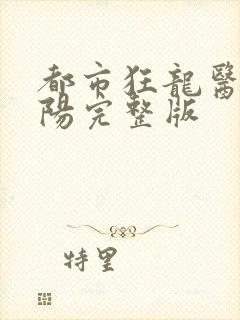 都市狂龍醫
陽完整版
特里